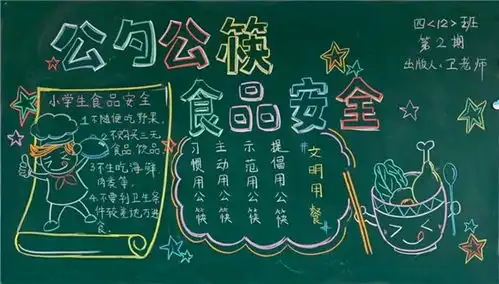 公勺公筷
食品安全
四<12>班
第2期
出版人:卫老师
小学生食品安全
1.不随便吃野果,
2.不购买三无
食品 饮品,
3.不生吃海鲜,
肉类等,
4.不要到卫生条
件较差地方进
食。
提倡用公筷
示范用公筷
主动用公筷
习惯用公筷
文明用餐